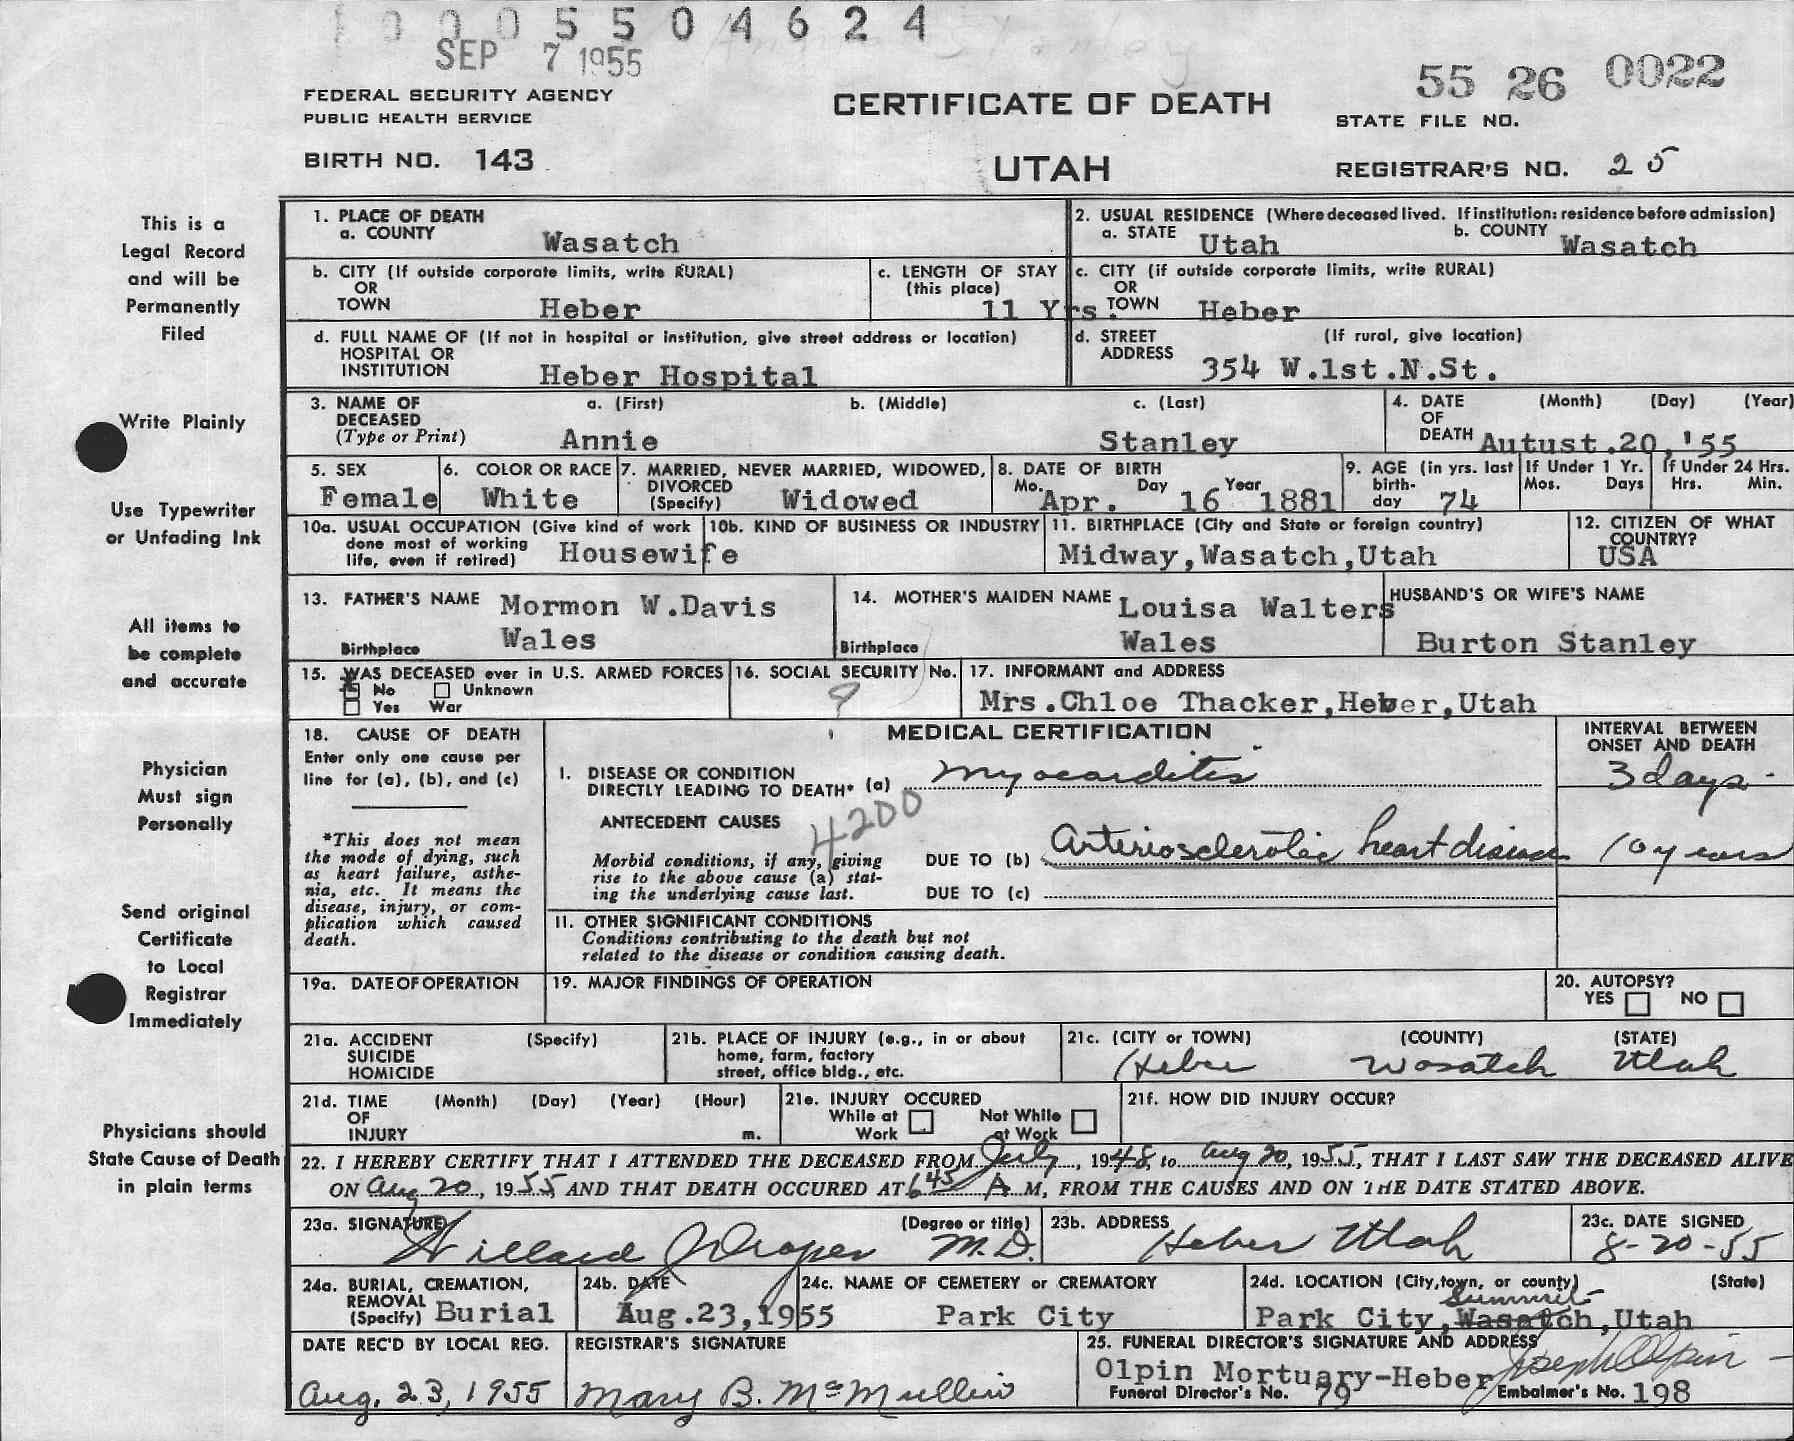 10005504624
SEP 7 1955
55 26 0022
FEDERAL SECURITY AGENCY
PUBLIC HEALTH SERVICE
CERTIFICATE OF DEATH
STATE FILE NO.
BIRTH NO. 143
UTAH
REGISTRAR'S NO. 25
This is a
Legal Record
and will be
Permanently
Filed
Write Plainly
Use Typewriter
or Unfading Ink
All items to
be complete
and accurate
Physician
Must sign
Personally
Send original
Certificate
to Local
Registrar
Immediately
Physicians should
State Cause of Death
in plain terms
1. PLACE OF DEATH
a. COUNTY Wasatch
2. USUAL RESIDENCE (Where deceased lived. If institution: residence before admission)
a. STATE Utah b. COUNTY Wasatch
b. CITY (If outside corporate limits, write RURAL)
OR
TOWN Heber
c. LENGTH OF STAY
(this place)
11 Yrs.
c. CITY (if outside corporate limits, write RURAL)
OR
TOWN Heber
d. FULL NAME OF (If not in hospital or institution, give street address or location)
HOSPITAL OR
INSTITUTION Heber Hospital
d. STREET (If rural, give location)
ADDRESS 354 W.1st.N.St.
3. NAME OF a. (First) b. (Middle) c. (Last)
DECEASED
(Type or Print) Annie Stanley
4. DATE (Month) (Day) (Year)
OF
DEATH Autust.20,'55
5. SEX
Female
6. COLOR OR RACE
White
7. MARRIED, NEVER MARRIED, WIDOWED,
DIVORCED
(Specify) Widowed
8. DATE OF BIRTH
Mo. Day Year
Apr. 16 1881
9. AGE (in yrs. last
birth-
day 74
If Under 1 Yr.
Mos. Days
If Under 24 Hrs.
Hrs. Min.
10a. USUAL OCCUPATION (Give kind of work
done most of working
life, even if retired) Housewife
10b. KIND OF BUSINESS OR INDUSTRY
11. BIRTHPLACE (City and State or foreign country)
Midway,Wasatch,Utah
12. CITIZEN OF WHAT
COUNTRY?
USA
13. FATHER'S NAME Mormon W.Davis
Birthplace Wales
14. MOTHER'S MAIDEN NAME Louisa Walters
Birthplace Wales
HUSBAND'S OR WIFE'S NAME
Burton Stanley
15. WAS DECEASED ever in U.S. ARMED FORCES
No Unknown
Yes War
16. SOCIAL SECURITY No.
9
17. INFORMANT and ADDRESS
Mrs.Chloe Thacker,Heber,Utah
18. CAUSE OF DEATH
Enter only one cause per
line for (a), (b), and (c)
*This does not mean
the mode of dying, such
as heart failure, asthe-
nia, etc. It means the
disease, injury, or com-
plication which caused
death.
MEDICAL CERTIFICATION
INTERVAL BETWEEN
ONSET AND DEATH
I. DISEASE OR CONDITION
DIRECTLY LEADING TO DEATH* (a) Myocarditis 3 days
4200
ANTECEDENT CAUSES
Morbid conditions, if any, giving
rise to the above cause (a) stat-
ing the underlying cause last.
DUE TO (b) Arteriosclerotic heart disease 10 years
DUE TO (c)
II. OTHER SIGNIFICANT CONDITIONS
Conditions contributing to the death but not
related to the disease or condition causing death.
19a. DATE OF OPERATION
19. MAJOR FINDINGS OF OPERATION
20. AUTOPSY?
YES NO
21a. ACCIDENT (Specify)
SUICIDE
HOMICIDE
21b. PLACE OF INJURY (e.g., in or about
home, farm, factory
street, office bldg., etc.
21c. (CITY or TOWN) (COUNTY) (STATE)
Heber Wasatch Utah
21d. TIME (Month) (Day) (Year) (Hour)
OF
INJURY m.
21e. INJURY OCCURED
While at Not While
Work at Work
21f. HOW DID INJURY OCCUR?
22. I HEREBY CERTIFY THAT I ATTENDED THE DECEASED FROM July, 1948, to Aug 20, 1955, THAT I LAST SAW THE DECEASED ALIVE
ON Aug 20, 1955 AND THAT DEATH OCCURED AT 645 A M, FROM THE CAUSES AND ON THE DATE STATED ABOVE.
23a. SIGNATURE (Degree or title)
Willard J Draper M.D.
23b. ADDRESS
Heber Utah
23c. DATE SIGNED
8-20-55
24a. BURIAL, CREMATION,
REMOVAL
(Specify) Burial
24b. DATE
Aug.23,1955
24c. NAME OF CEMETERY or CREMATORY
Park City
24d. LOCATION (City, town, or county) (State)
Summit
Park City,Wasatch,Utah
DATE REC'D BY LOCAL REG.
Aug. 23, 1955
REGISTRAR'S SIGNATURE
Mary B. McMullin
25. FUNERAL DIRECTOR'S SIGNATURE AND ADDRESS
Olpin Mortuary-Heber Joseph Olpin
Funeral Director's No. 79 Embalmer's No. 198